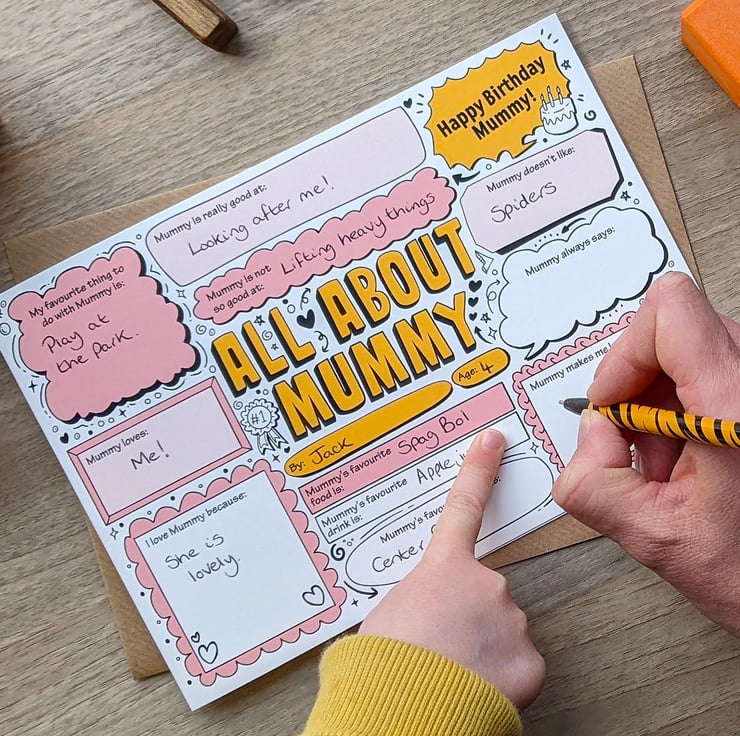 Happy Birthday
Mummy!
Mummy is really good at:
Looking after me!
Mummy doesn't like:
Spiders
Mummy is not
so good at:
Lifting heavy things
My favourite thing to
do with Mummy is:
Play at
the park.
ALL ABOUT
MUMMY
Mummy always says:
Mummy loves:
Me!
#1
By: Jack
Age: 4
Mummy makes me
Mummy's favourite
food is:
Spag Bol
Mummy's favourite
drink is:
I love Mummy because:
She is
lovely.
Mummy's
Center